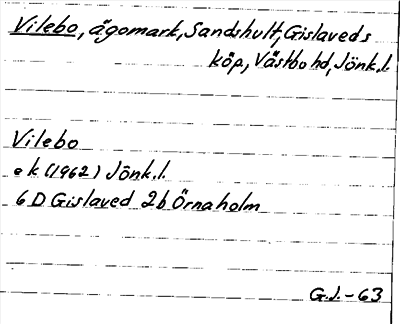 Vilebo, ägomark, Sandshult, Gislaveds
köp, Västbo hd, Jönk.l.
Vilebo
ek (1962) Jönk.l.
6 D Gislaved 2b Örnaholm
G.J. - 63